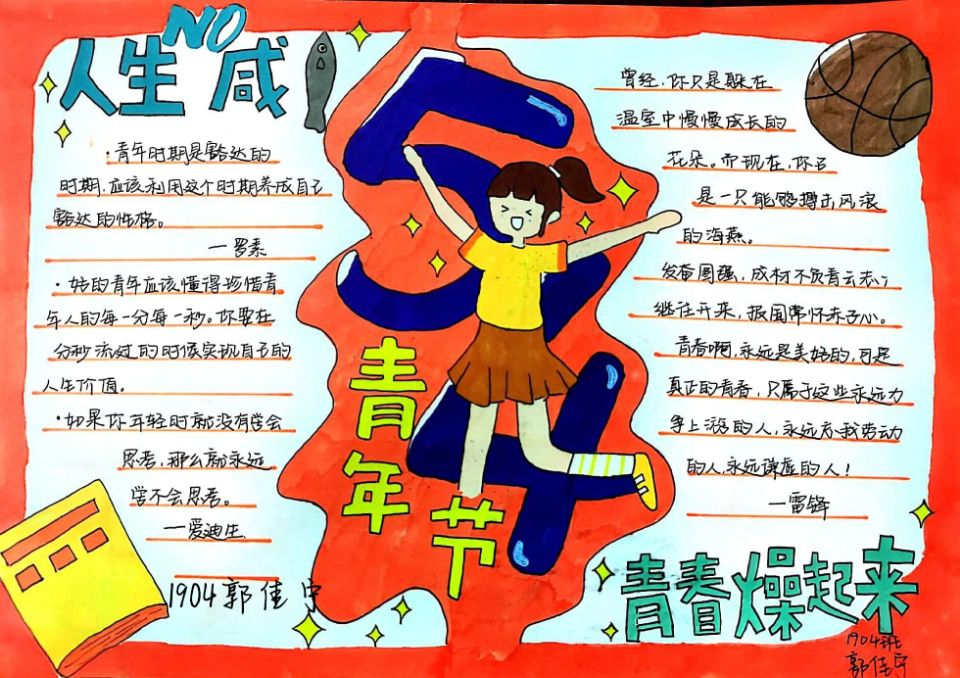 人生NO咸
·青年时期是豁达的
时期，应该利用这个时期养成自己
豁达的性格。
—罗素
·好的青年应该懂得珍惜青
年人的每一分每一秒。你要在
分秒流过的时候实现自己的
人生价值。
·如果你年轻时就没有学会
思考，那么就永远
学不会思考。
—爱迪生
1904郭佳宁
五四
青年节
曾经，你只是躲在
温室中慢慢成长的
花朵。而现在，你已
是一只能够搏击风浪
的海燕。
发奋图强，成材不负青云志；
继往开来，报国常怀赤子心。
青春啊，永远是美好的，可是
真正的青春，只属于这些永远力
争上游的人，永远忘我劳动
的人，永远谦虚的人！
—雷锋
青春燥起来
1904班
郭佳宁